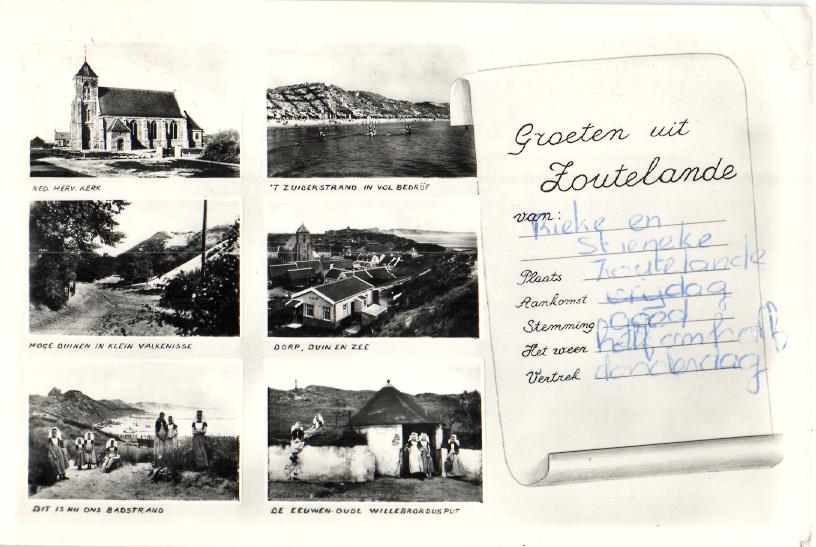 NED. HERV. KERK
'T ZUIDERSTRAND IN VOL BEDRIJF
HOGE DUINEN IN KLEIN VALKENISSE
DORP, DUIN EN ZEE
DIT IS NU ONS BADSTRAND
DE EEUWEN-OUDE WILLEBRORDUSPUT
Groeten uit
Zoutelande
van: Rieke en
Stieneke
Plaats Zoutelande
Aankomst vrijdag
Stemming goed
Het weer half om half
Vertrek donderdag